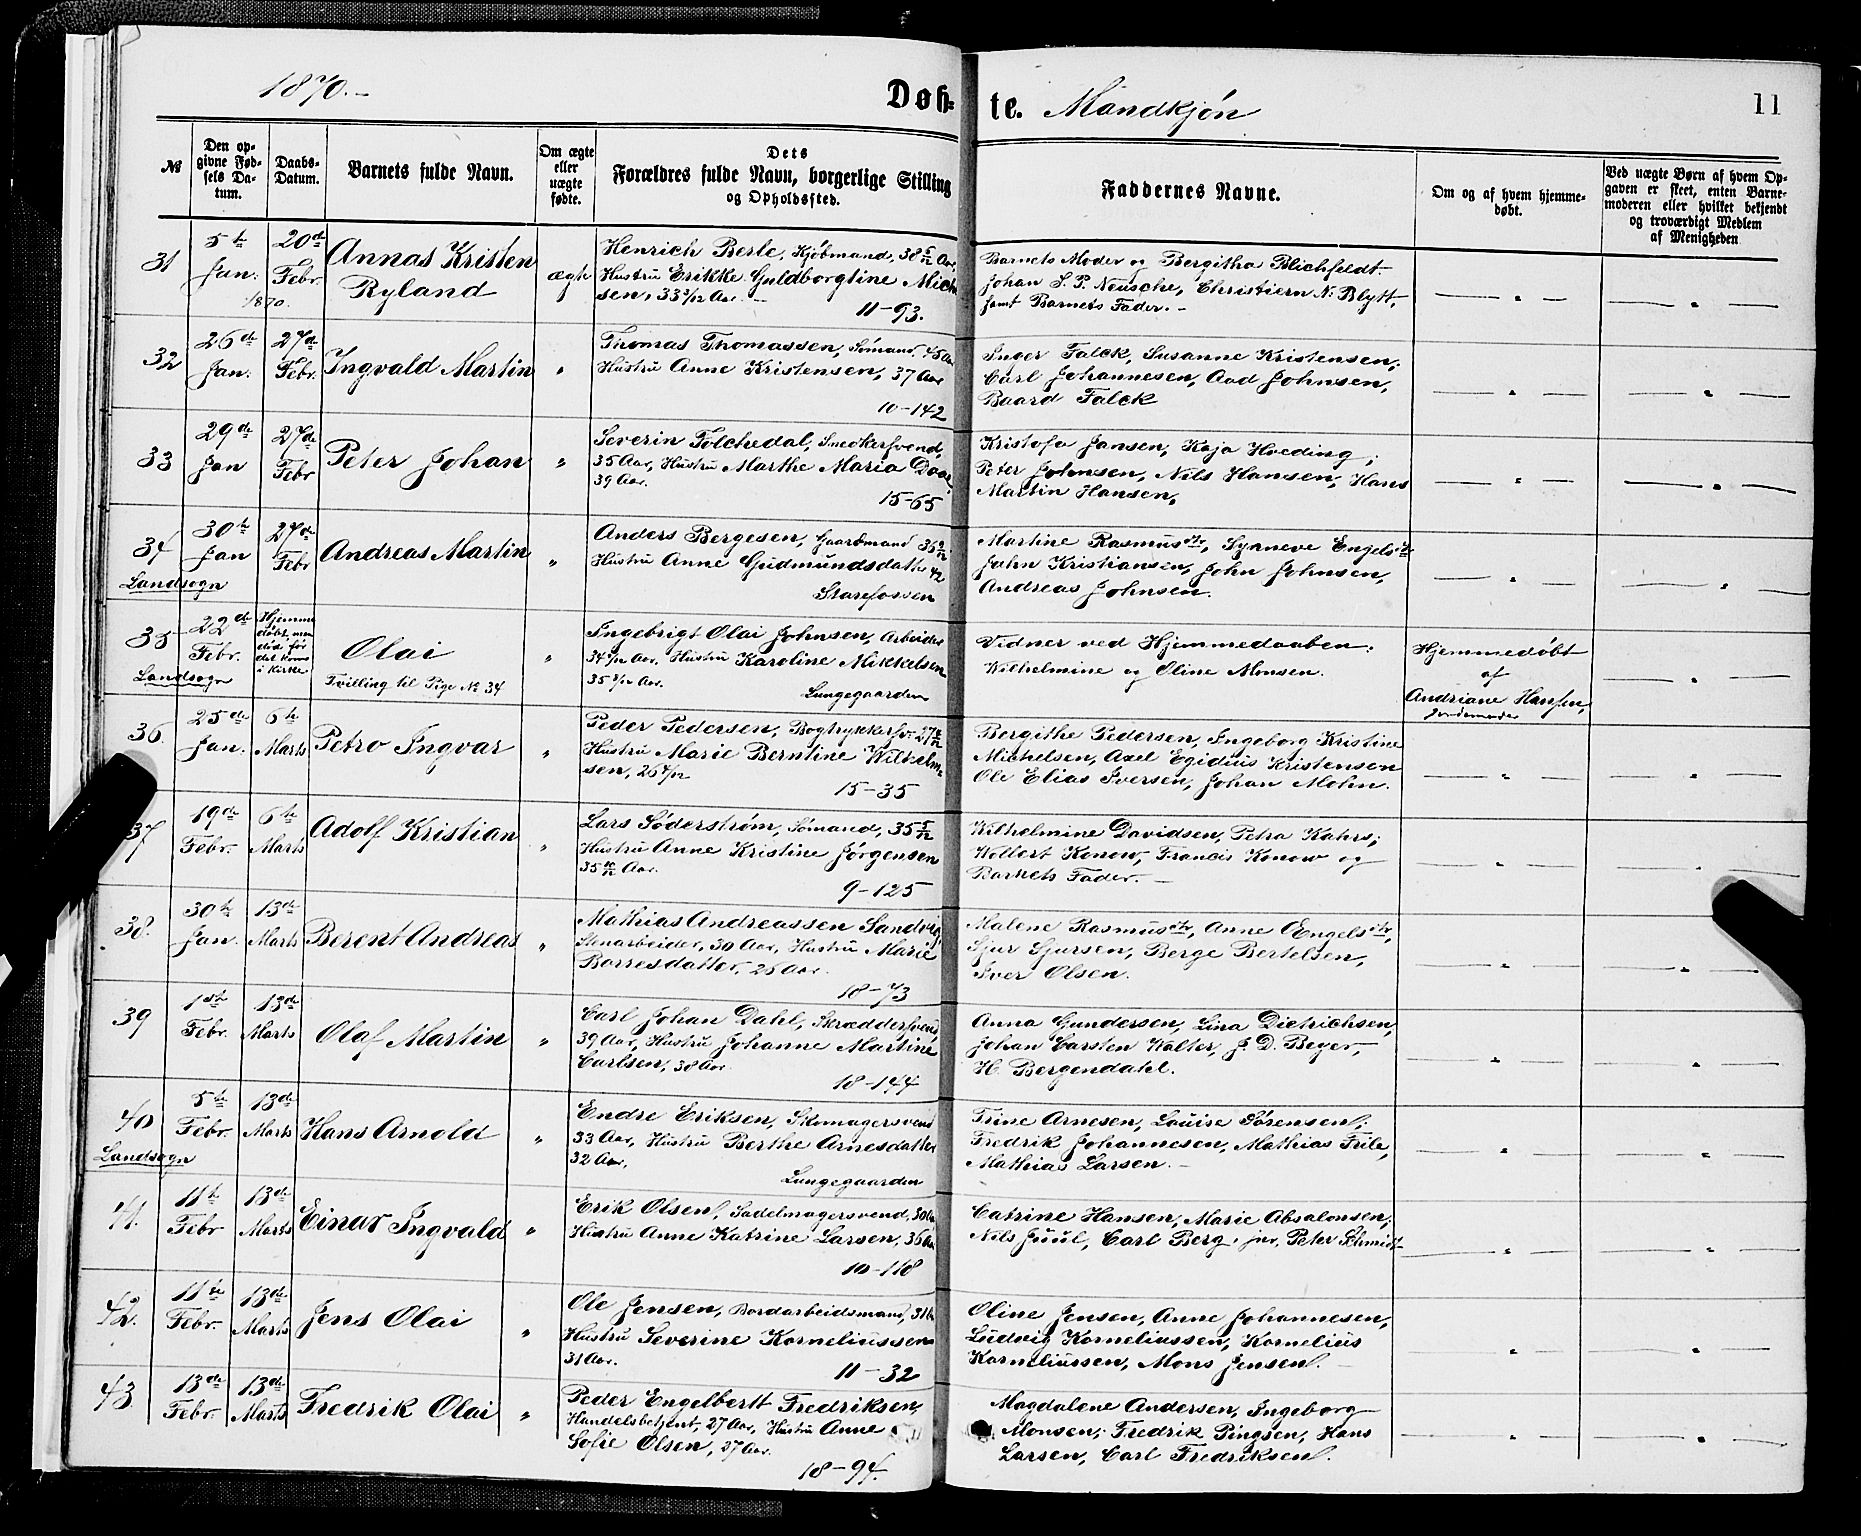 1870.-
Døb-
te. Mandkjøn
11
№
Den op-
givne Fød-
sels Da-
tum.
Daabs-
Datum.
Barnets fulde Navn.
Om ægte
eller
uægte
fødte.
Dets
Forældres fulde Navn, borgerlige Stilling
og Opholdssted.
Faddernes Navne.
Om og af hvem hjemme-
døbt.
Ved uægte Børn af hvem Op-
gaven er skeet, enten Barne-
moderen eller hvilket bekjendt
og troværdigt Medlem
af Menigheden
31
5te
Jan:
1870.
20de
Febr.
Annas Kristen
Ryland
ægte
Henrich Berle, Kjøbmand, 38 5/12 Aar,
Hustru Erikke Guldborgtine Mich
sen, 33 2/12 Aar. -
11-93.
Barnets Moder og Bergitha Blichfeldt.
Johan S. P. Neusche, Christiern N. Blytt,
samt Barnets Fader. -
32
26de
Jan.
27de
Febr.
Ingvald Martin
"
Thomas Thomassen, Sømand, 45 Aar
Hustru Anne Kristensen, 37 Aar
10-142
Inger Falck, Susanne Kristensen;
Carl Johannesen, Aad Johnsen,
Baard Falck
33
29de
Jan
27de
Febr
Peter Johan
"
Severin Folchedal, Snedkersvend,
35 Aar, Hustru Marthe Maria Daae
39 Aar.
15-65
Kristofa Jansen, Kaja Hveding;
Peter Johnsen, Nils Hansen, Hans
Martin Hansen,
34
Landsogn
30te
Jan
27de
Febr
Andreas Martin
"
Anders Bergesen, Gaardmand 35 9/12
Hustru Anne Gudmundsdatter 42
Starefossen
Martine Rasmusdtr, Synneve Engelsdtr
John Kristiansen, John Johnsen,
Andreas Johnsen.
35
Landsogn
22de
Febr.
Hjemme
døbt, men
død før
det kom
i Kirke
Olai
Tvilling til Pige № 34
"
Ingebrigt Olai Johnsen, Arbeider
34 9/12 Aar. Hustru Karoline Mikkelsen
35 3/12 Aar.
Lungegaarden
Vidner ved Hjemmedaaben:
Wilhelmine og Oline Monsen.
Hjemmedøbt
af
Andriane Hansen,
Jordemoder
36.
25de
Jan.
6te
Marts
Petro Ingvar
"
Peder Pedersen, Bogtrykkersv.
Hustru Marie Berntine Wilhelm-
sen, 26 4/12
15-35
Bergithe Pedersen, Ingeborg Kristine
Michelsen, Axel Egidius Kristensen
Ole Elias Iversen, Johan Mohn.
37
19de
Febr.
6te
Marts
Adolf Kristian
"
Lars Søderstrøm, Sømand, 35 5/12
Hustru Anne Kristine Jørgensen
35 10/12 Aar.
9-125
Wilhelmine Davidsen, Petra Kahrs;
Wollert Konow, Francis Konow og
Barnets Fader. -
38.
30te
Jan.
13de
Marts
Berent Andreas
"
Mathias Andreassen Sandvig,
Stenarbeider, 30 Aar, Hustru Marie
Borresdatter, 25 Aar.
18-73
Malene Rasmusdtr, Anne Engelsdtr,
Sjur Sjursen, Berge Bertelsen,
Iver Olsen.
39
1ste
Febr.
13de
Marts
Olaf Martin
"
Carl Johan Dahl, Skræddersvend
39 Aar, Hustru Johanne Martine
Carlsen, 38 Aar.
18-144
Anna Gundersen, Lina Dietrichsen,
Johan Carsten Walter, J. D. Beyer,
H. Bergendahl.
40
Landsogn
5te
Febr.
13de
Marts
Hans Arnold
"
Endre Eriksen, Skomagersvend
33 Aar, Hustru Berthe Arnesdatter
32 Aar,
Lungegaarden
Trine Arnesen, Louise Sørensen;
Fredrik Johannesen, Mathias Frile,
Mathias Larsen. -
41.
11te
Febr
13de
Marts
Einar Ingvald
"
Erik Olsen, Sadelmagersvend, 30 Aar
Hustru Anne Katrine Larsen, 36 Aar
10-118
Catrine Hansen, Marie Absalonsen;
Nils Juul, Carl Berg jnr, Peter Schmidt
42.
11te
Febr.
13de
Marts
Jens Olai
"
Ole Jensen, Bordarbeidsmand, 31
Hustru Severine Korneliussen
31 Aar.
11-32
Oline Jensen, Anne Johannesen,
Ludvig Korneliussen, Kornelius
Korneliussen, Mons Jensen.
43
13de
Febr.
13de
Marts
Fredrik Olai
"
Peder Engelbertt Fredriksen,
Handelsbetjent, 27 Aar, Hustru Anne
Sofie Olsen, 27 Aar.
18-94.
Magdalene Andersen, Ingeborg
Monsen; Fredrik Pingsen, Hans
Larsen, Carl Fredriksen.